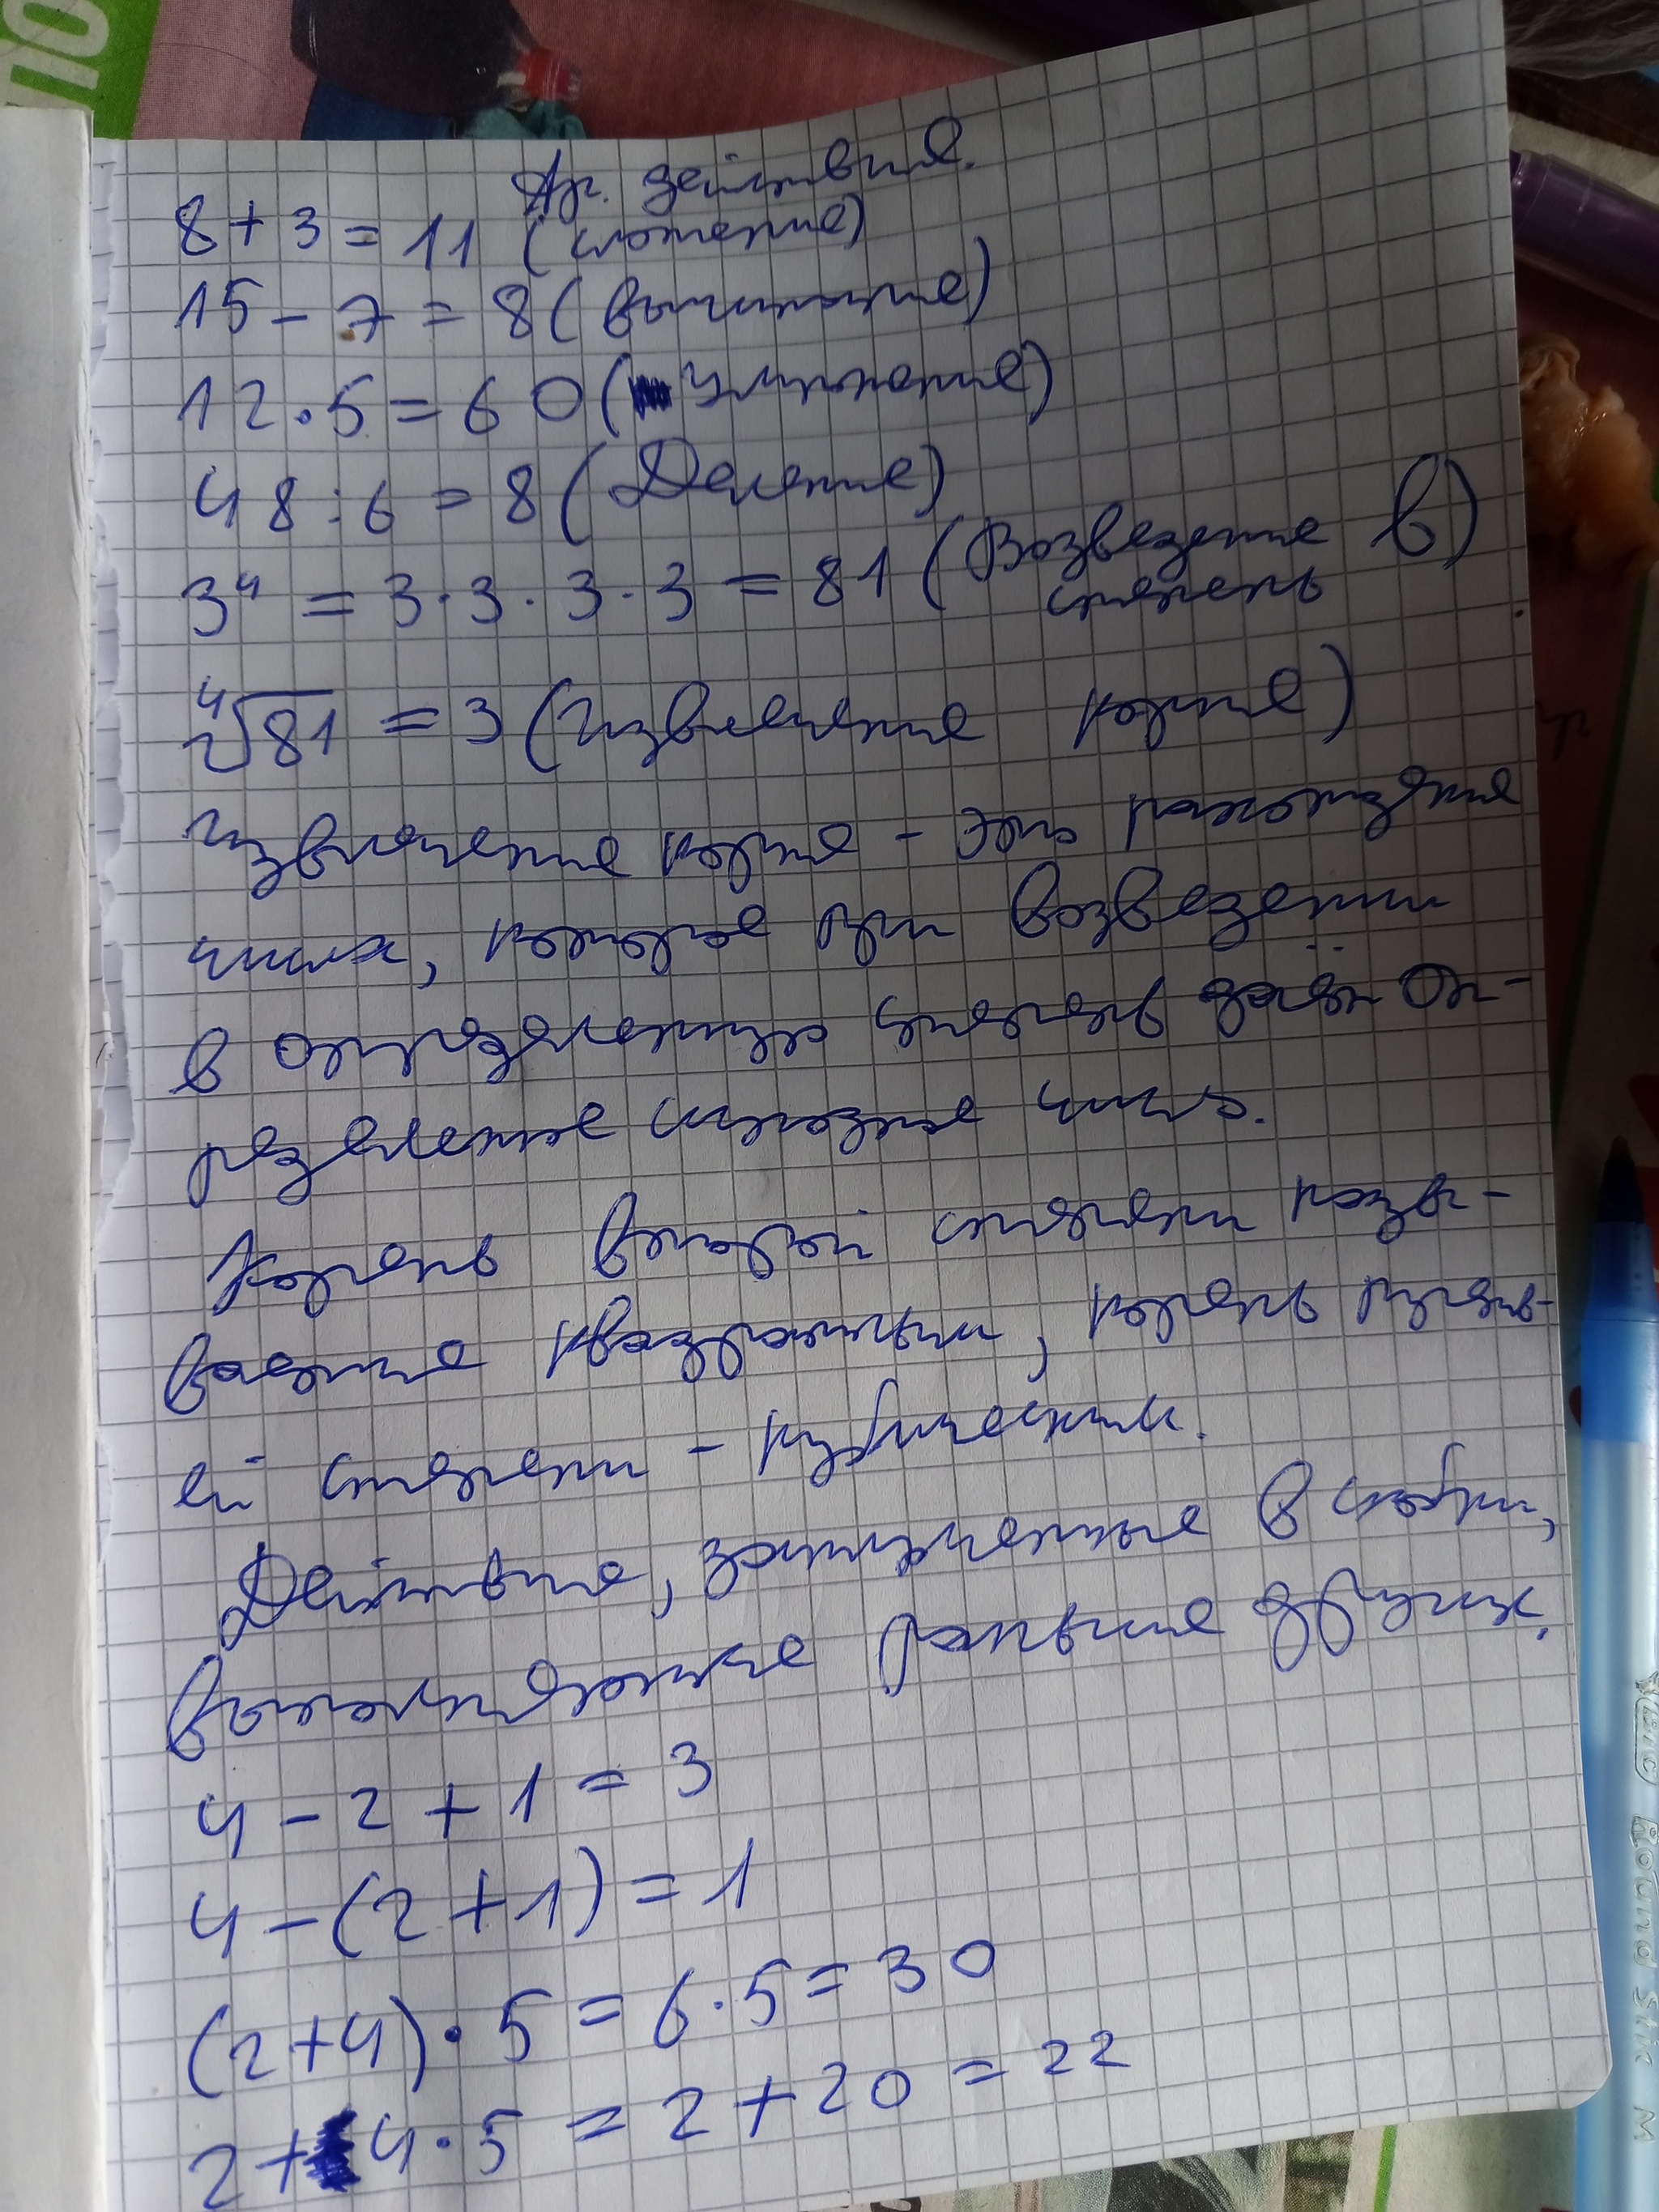 Ар. действия.
8 + 3 = 11 (сложение)
15 - 7 = 8 (вычитание)
12 · 5 = 60 (умножение)
48 : 6 = 8 (Деление)
3⁴ = 3 · 3 · 3 · 3 = 81 (Возведение в)
степень
⁴√81 = 3 (извлечение корня)
извлечение корня - это нахождение
числа, которое при возведении
в степень даёт оп-
ределенное число.
Корень второй степени назы-
вается квадратным, корень
ей степени - кубическим.
Действия, заключенные в скобки,
раньше других.
4 - 2 + 1 = 3
4 - (2 + 1) = 1
(2+4) · 5 = 6 · 5 = 30
2 + 4 · 5 = 2 + 20 = 22
bic Round Stic M